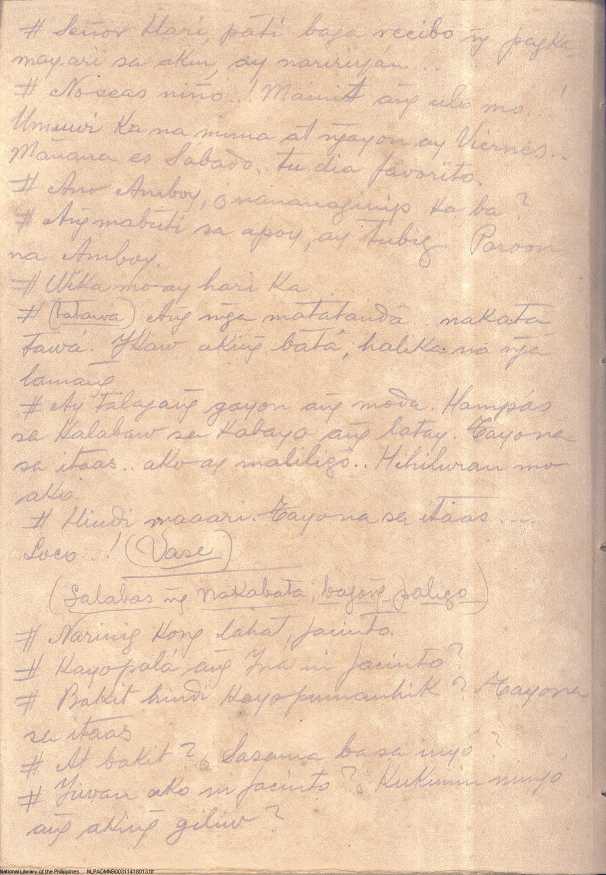 # Señor Hari, pati baga recibo ñg pagka
mayari sa akin, ay naririyan...
# No seas niño..! Mainit ang ulo mo..!
Umuwi Ka na muna at ñgayon ay Viernes..
Mañana es Sabado.. tu dia favorito.
# Ano Amboy, ó nananaginip ka ba?
# Ang mabuti sa apoy, ay tubig. Paroon
na Amboy.
# Wika mo ay hari Ka
# (tatawa) Ang mga matatanda nakata
tawá. Ikaw aking batá, halika na ñga
lamang
# Ay talagang gayon ang moda. Hampas
sa Kalabaw sa Kabayo ang latay. Tayo na
sa itaas.. ako ay maliligo.. Hihiluran mo
ako.
# Hindi maaari. Tayo na sa itaas....
Loco..! (Vase)
(Lalabas ñg nakabata, bagong paligo)
# Narinig Kong lahat, Jacinto.
# Kayo palá ang Ina ni Jacinto?
# Bakit hindi Kayo pumanhik? Tayo na
sa itaas
# At bakit? ó Sasama ba sa inyó?
# Iiwan ako ni Jacinto? ó Kukunin ninyó
ang aking giliw?
National Library of the Philippines